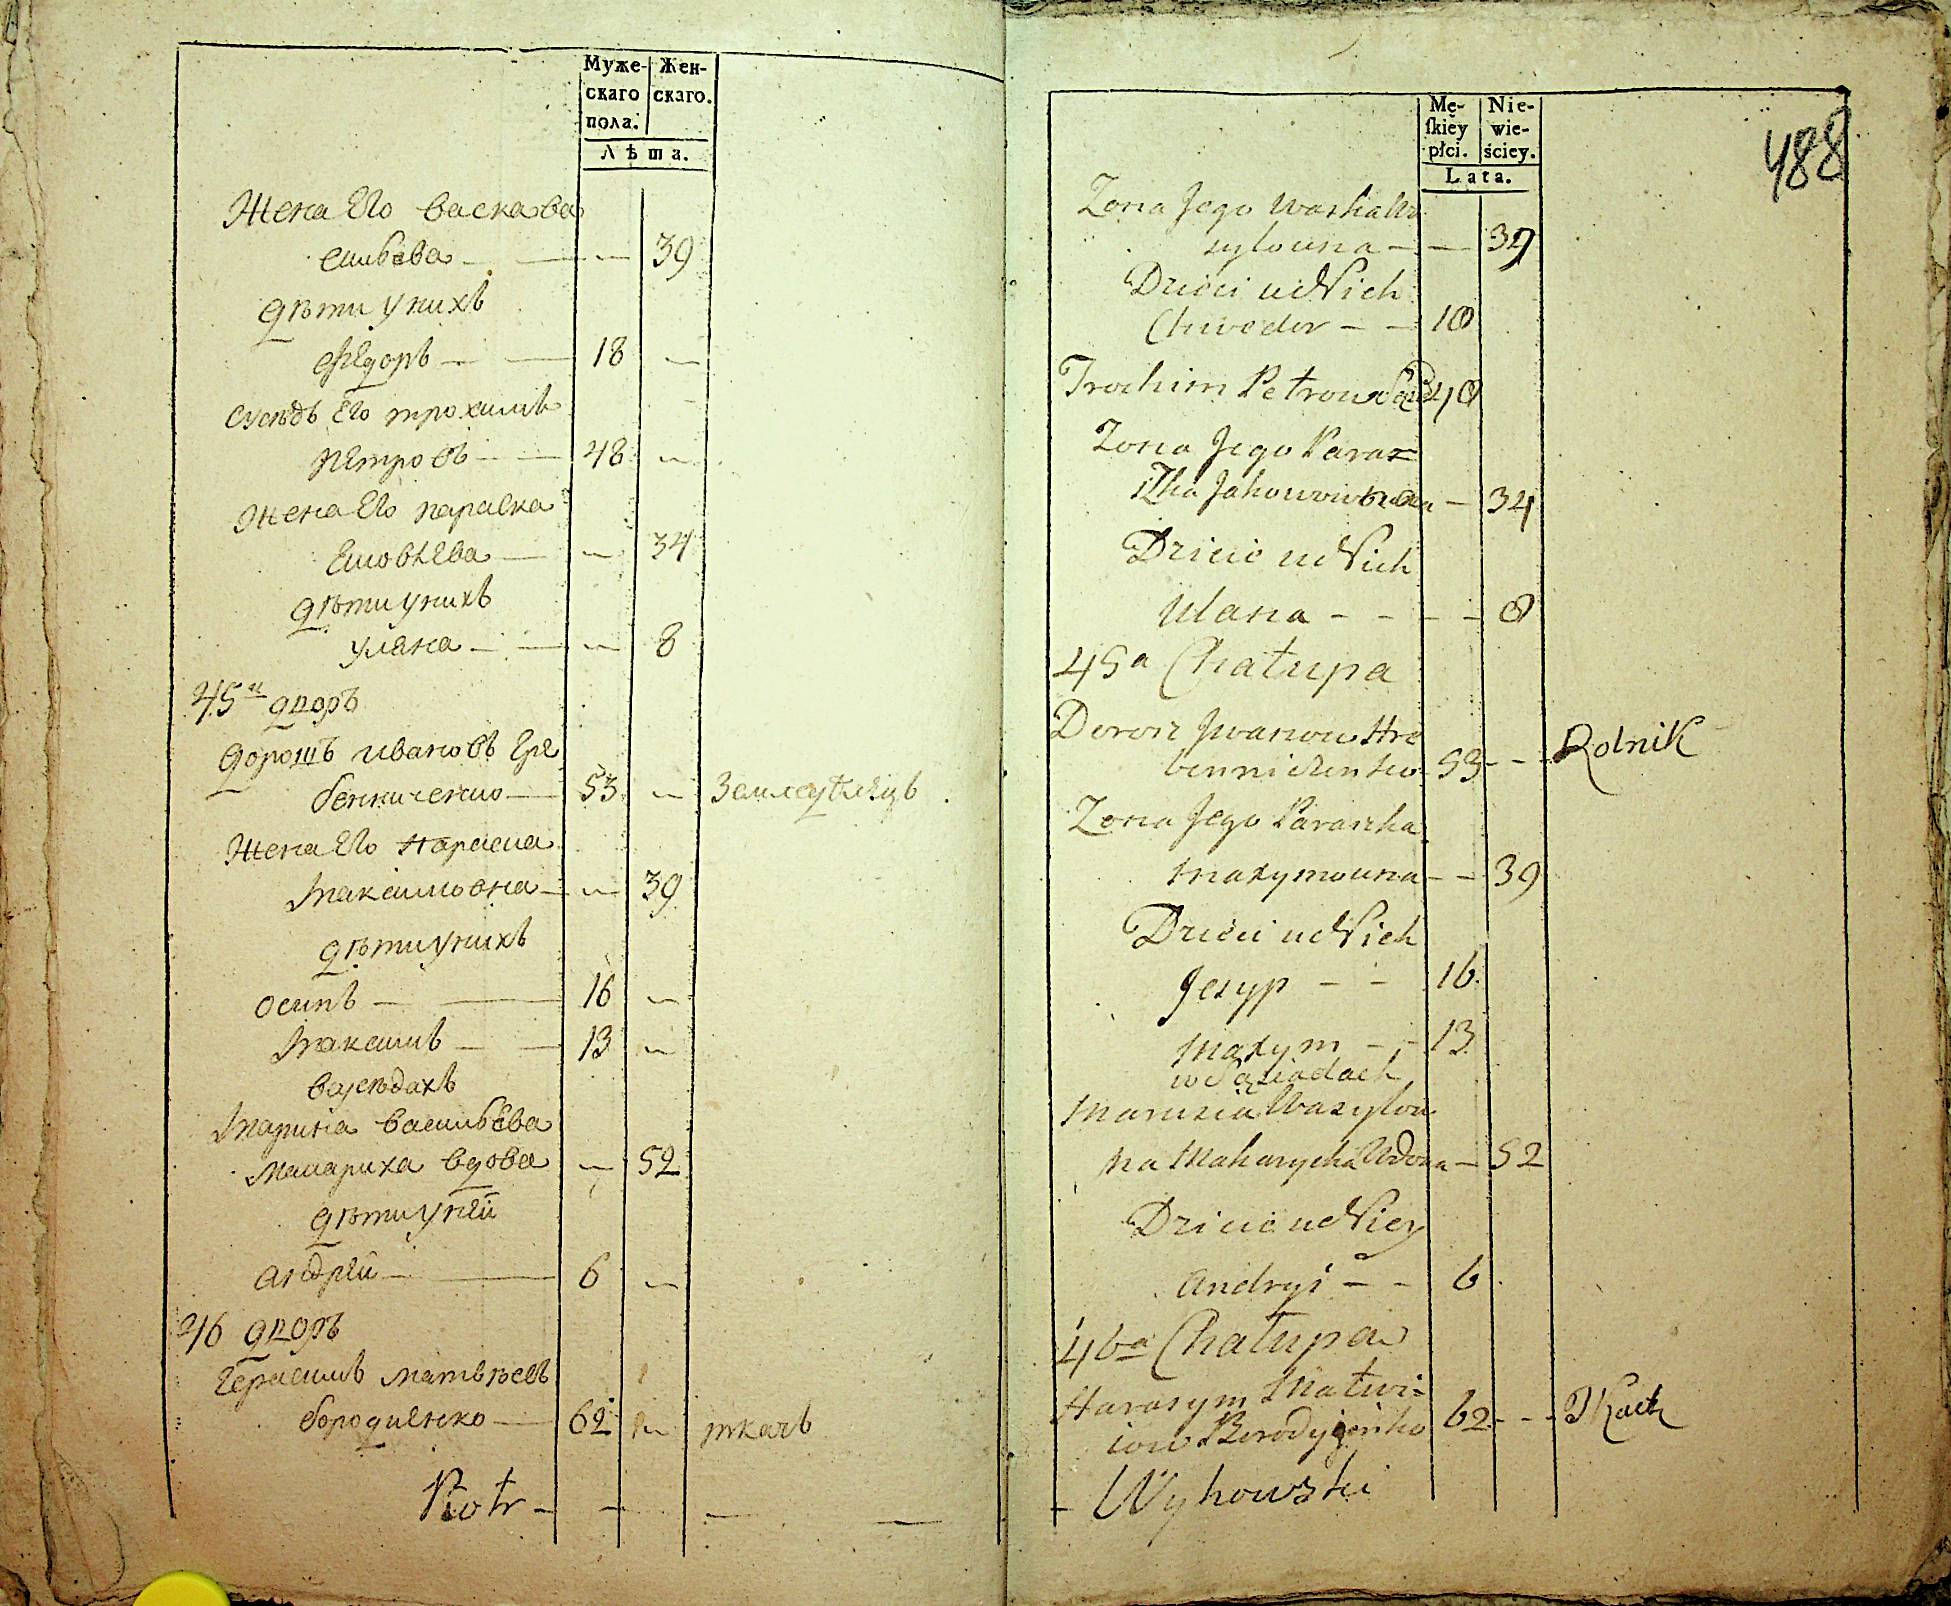 Муже- Жен-
скаго скаго.
пола.
Лѣта.
Жена Его Васка Ва
сильева — — 39
Дѣти У нихъ
Федоръ — — 18 —
Сусѣдъ Его Трохимъ
Петровъ — — 48 —
Жена Его Параска
— — 34
Дѣти У нихъ
Уляна — — — 8
45й Дворъ
Дорошъ Ивановъ Гре
бенниченко — 53 — Земледѣлецъ
Жена Его Параска
Максимовна — — 39
Дѣти У нихъ
Осипъ — — 16 —
Максимъ — — 13 —
В сусѣдахъ
Марина Васильева
Макариха Вдова — 52
Дѣти У ней
Андрей — — 6 —
46 Дворъ
Герасимъ Матвѣевъ
Бородиенко — 62 — ткачь
Piotr — — — —
Mę- Nie-
skiěy wie-
płci. ściey.
Lata.
488
Zona Jego Waska Wa
sylowna — — 39
Dzieci u Nich
Chwedor — — 18
Trochim Petrow 48
Zona Jego Paras=
zka — 34
Dzieci u Nich
Ulana — — — — 8
45a Chałupa
Dorosz Jwanow Hre
benniczenko 53 — — Rolnik
Zona Jego Paraszka
Maxymowna — — 39
Dzieci u Nich
Jesyp — — 16
Maxym — — 13
w Sąsiadach
Marusia Wasylow
na Makarycha Wdowa — 52
Dzieci u Niey
Andryi — — 6
46a Chałupa
Harasym Matwi=
iow Borodyienko 62 — — Tkacz
— Wyhowski